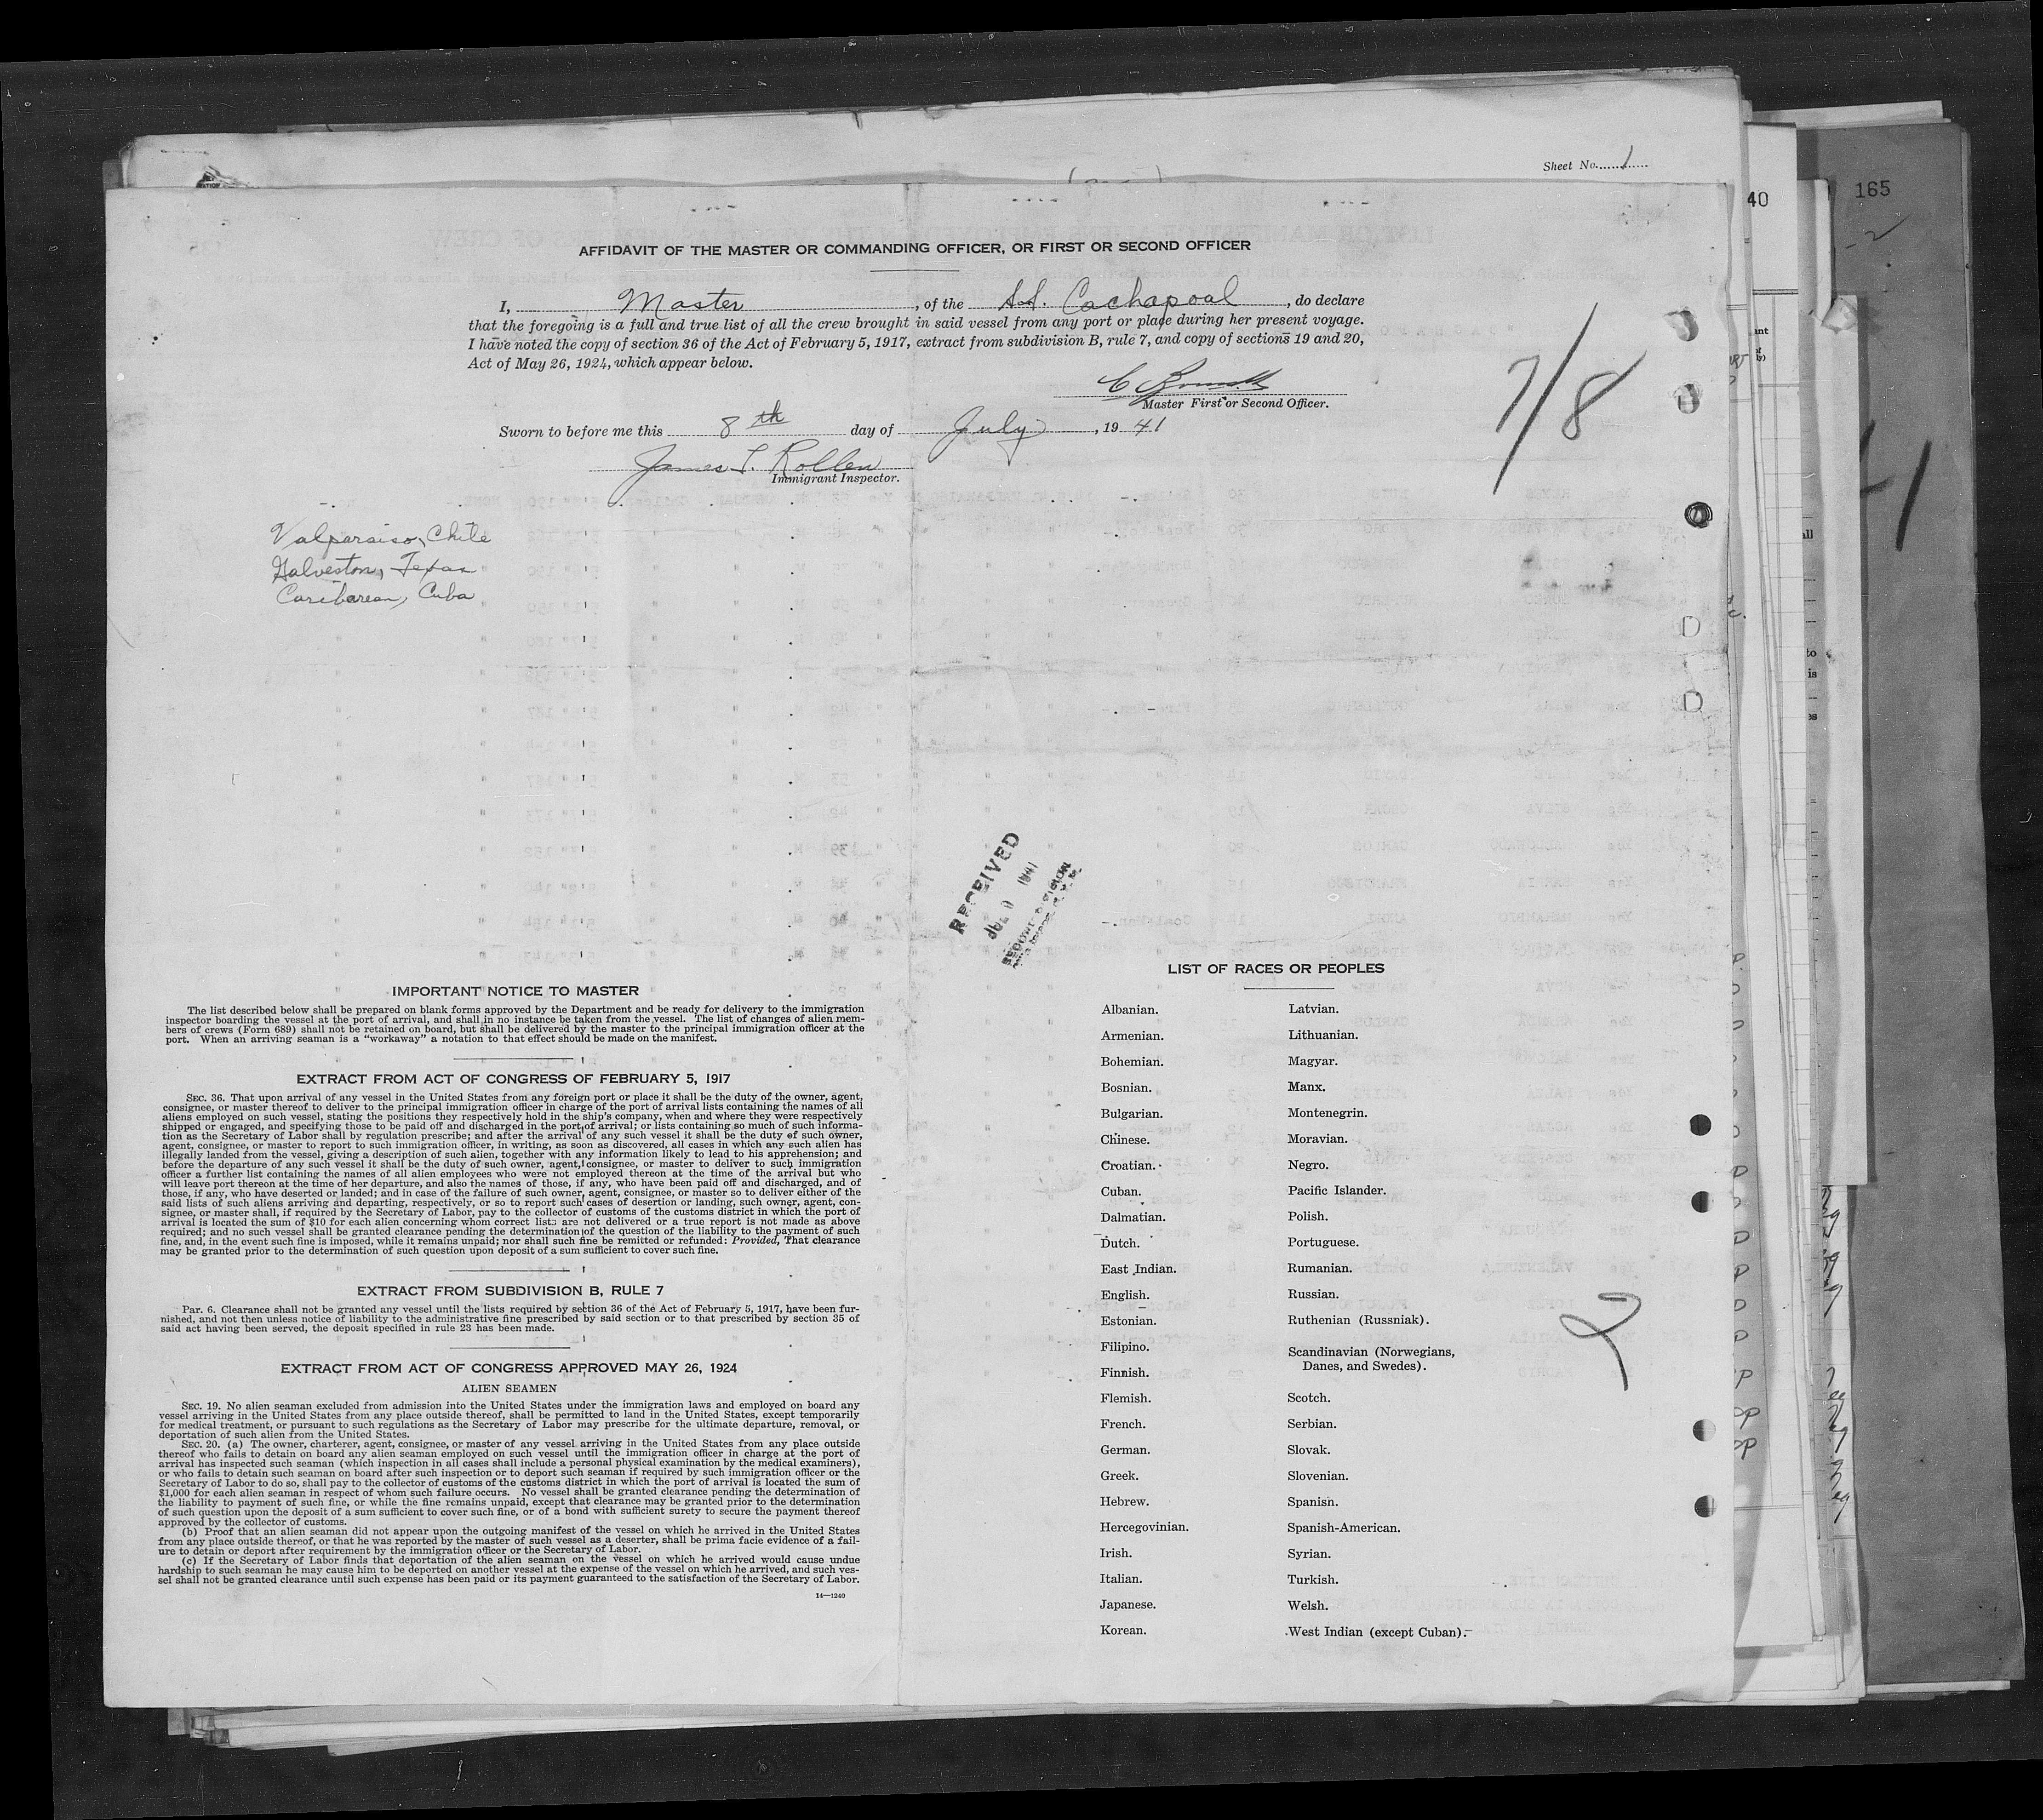 Sheet No. 1
40
165
AFFIDAVIT OF THE MASTER OR COMMANDING OFFICER, OR FIRST OR SECOND OFFICER
I, Master, of the S.S. Cachapoal, do declare
that the foregoing is a full and true list of all the crew brought in said vessel from any port or place during her present voyage.
I have noted the copy of section 36 of the Act of February 5, 1917, extract from subdivision B, rule 7, and copy of sections 19 and 20,
Act of May 26, 1924, which appear below.
Master First or Second Officer.
7/8
Sworn to before me this 8th day of July, 1941
James T. Rollen
Immigrant Inspector.
Valparaiso, Chile
Galveston, Texas
Caribarean, Cuba
RECEIVED
1941
IMPORTANT NOTICE TO MASTER
The list described below shall be prepared on blank forms approved by the Department and be ready for delivery to the immigration
inspector boarding the vessel at the port of arrival, and shall in no instance be taken from the vessel. The list of changes of alien mem-
bers of crews (Form 689) shall not be retained on board, but shall be delivered by the master to the principal immigration officer at the
port. When an arriving seaman is a "workaway" a notation to that effect should be made on the manifest.
EXTRACT FROM ACT OF CONGRESS OF FEBRUARY 5, 1917
SEC. 36. That upon arrival of any vessel in the United States from any foreign port or place it shall be the duty of the owner, agent,
consignee, or master thereof to deliver to the principal immigration officer in charge of the port of arrival lists containing the names of all
aliens employed on such vessel, stating the positions they respectively hold in the ship's company, when and where they were respectively
shipped or engaged, and specifying those to be paid off and discharged in the port of arrival; or lists containing so much of such informa-
tion as the Secretary of Labor shall by regulation prescribe; and after the arrival of any such vessel it shall be the duty of such owner,
agent, consignee, or master to report to such immigration officer, in writing, as soon as discovered, all cases in which any such alien has
illegally landed from the vessel, giving a description of such alien, together with any information likely to lead to his apprehension; and
before the departure of any such vessel it shall be the duty of such owner, agent, consignee, or master to deliver to such immigration
officer a further list containing the names of all alien employees who were not employed thereon at the time of the arrival but who
will leave port thereon at the time of her departure, and also the names of those, if any, who have been paid off and discharged, and of
those, if any, who have deserted or landed; and in case of the failure of such owner, agent, consignee, or master so to deliver either of the
said lists of such aliens arriving and departing, respectively, or so to report such cases of desertion or landing, such owner, agent, con-
signee, or master shall, if required by the Secretary of Labor, pay to the collector of customs of the customs district in which the port of
arrival is located the sum of $10 for each alien concerning whom correct lists are not delivered or a true report is not made as above
required; and no such vessel shall be granted clearance pending the determination of the question of the liability to the payment of such
fine, and, in the event such fine is imposed, while it remains unpaid; nor shall such fine be remitted or refunded: Provided, That clearance
may be granted prior to the determination of such question upon deposit of a sum sufficient to cover such fine.
EXTRACT FROM SUBDIVISION B, RULE 7
Par. 6. Clearance shall not be granted any vessel until the lists required by section 36 of the Act of February 5, 1917, have been fur-
nished, and not then unless notice of liability to the administrative fine prescribed by said section or to that prescribed by section 35 of
said act having been served, the deposit specified in rule 23 has been made.
EXTRACT FROM ACT OF CONGRESS APPROVED MAY 26, 1924
ALIEN SEAMEN
SEC. 19. No alien seaman excluded from admission into the United States under the immigration laws and employed on board any
vessel arriving in the United States from any place outside thereof, shall be permitted to land in the United States, except temporarily
for medical treatment, or pursuant to such regulations as the Secretary of Labor may prescribe for the ultimate departure, removal, or
deportation of such alien from the United States.
SEC. 20. (a) The owner, charterer, agent, consignee, or master of any vessel arriving in the United States from any place outside
thereof who fails to detain on board any alien seaman employed on such vessel until the immigration officer in charge at the port of
arrival has inspected such seaman (which inspection in all cases shall include a personal physical examination by the medical examiners),
or who fails to detain such seaman on board after such inspection or to deport such seaman if required by such immigration officer or the
Secretary of Labor to do so, shall pay to the collector of customs of the customs district in which the port of arrival is located the sum of
$1,000 for each alien seaman in respect of whom such failure occurs. No vessel shall be granted clearance pending the determination of
the liability to payment of such fine, or while the fine remains unpaid, except that clearance may be granted prior to the determination
of such question upon the deposit of a sum sufficient to cover such fine, or of a bond with sufficient surety to secure the payment thereof
approved by the collector of customs.
(b) Proof that an alien seaman did not appear upon the outgoing manifest of the vessel on which he arrived in the United States
from any place outside thereof, or that he was reported by the master of such vessel as a deserter, shall be prima facie evidence of a fail-
ure to detain or deport after requirement by the immigration officer or the Secretary of Labor.
(c) If the Secretary of Labor finds that deportation of the alien seaman on the vessel on which he arrived would cause undue
hardship to such seaman he may cause him to be deported on another vessel at the expense of the vessel on which he arrived, and such ves-
sel shall not be granted clearance until such expense has been paid or its payment guaranteed to the satisfaction of the Secretary of Labor.
14—1240
LIST OF RACES OR PEOPLES
Albanian.
Armenian.
Bohemian.
Bosnian.
Bulgarian.
Chinese.
Croatian.
Cuban.
Dalmatian.
Dutch.
East Indian.
English.
Estonian.
Filipino.
Finnish.
Flemish.
French.
German.
Greek.
Hebrew.
Hercegovinian.
Irish.
Italian.
Japanese.
Korean.
Latvian.
Lithuanian.
Magyar.
Manx.
Montenegrin.
Moravian.
Negro.
Pacific Islander.
Polish.
Portuguese.
Rumanian.
Russian.
Ruthenian (Russniak).
Scandinavian (Norwegians,
Danes, and Swedes).
Scotch.
Serbian.
Slovak.
Slovenian.
Spanish.
Spanish-American.
Syrian.
Turkish.
Welsh.
West Indian (except Cuban).